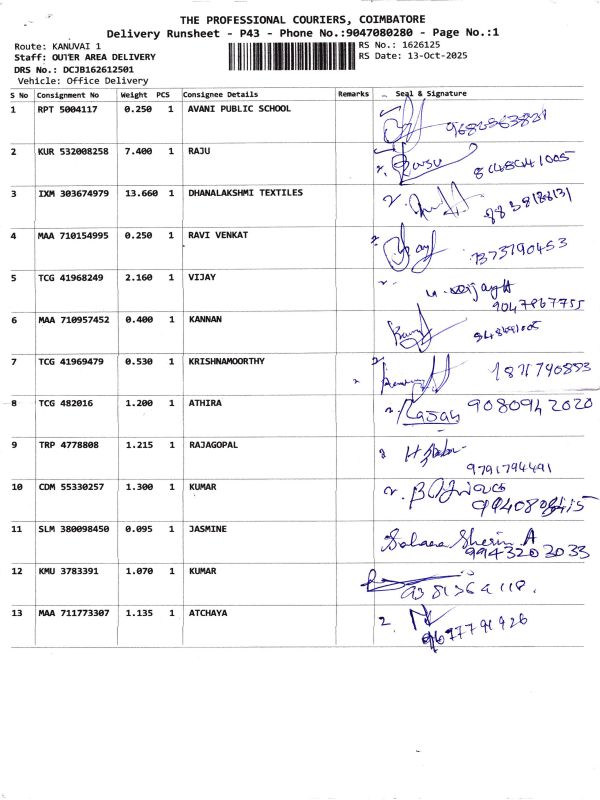 THE PROFESSIONAL COURIERS, COIMBATORE
Delivery Runsheet - P43 - Phone No.:9047080280 - Page No.:1
Route: KANUVAI 1 RS No.: 1626125
Staff: OUTER AREA DELIVERY RS Date: 13-Oct-2025
DRS No.: DCJB162612501
Vehicle: Office Delivery
S No Consignment No Weight PCS Consignee Details Remarks Seal & Signature
1 RPT 5004117 0.250 1 AVANI PUBLIC SCHOOL
2 KUR 532008258 7.400 1 RAJU
3 IXM 303674979 13.660 1 DHANALAKSHMI TEXTILES
4 MAA 710154995 0.250 1 RAVI VENKAT
5 TCG 41968249 2.160 1 VIJAY
9047867755
6 MAA 710957452 0.400 1 KANNAN
7 TCG 41969479 0.530 1 KRISHNAMOORTHY
8 TCG 482016 1.200 1 ATHIRA 9080942020
9 TRP 4778808 1.215 1 RAJAGOPAL
9791794491
10 CDM 55330257 1.300 1 KUMAR
11 SLM 380098450 0.095 1 JASMINE Sahana Sherin A
9943203033
12 KMU 3783391 1.070 1 KUMAR
13 MAA 711773307 1.135 1 ATCHAYA 2.
9677791926